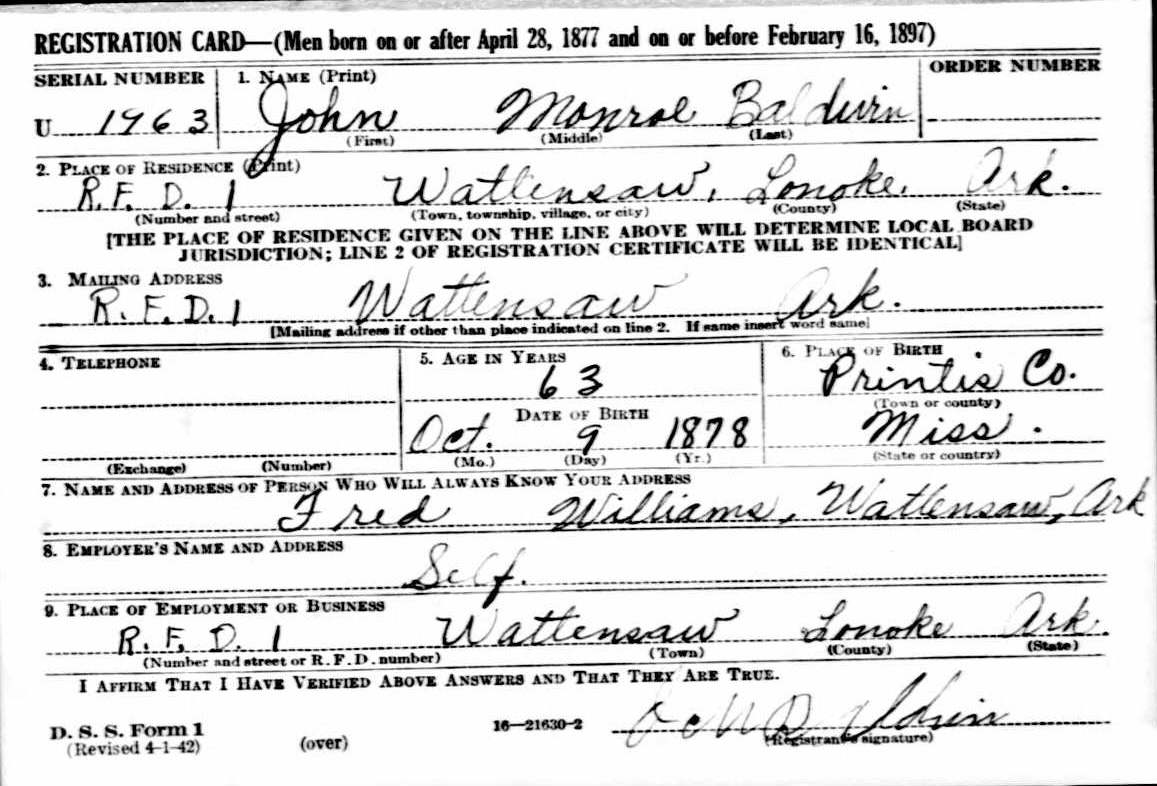 REGISTRATION CARD—(Men born on or after April 28, 1877 and on or before February 16, 1897)
SERIAL NUMBER 1. NAME (Print) ORDER NUMBER
U 1963 John Monroe Baldwin
(First) (Middle) (Last)
2. PLACE OF RESIDENCE (Print)
R.F.D. 1 Wattensaw, Lonoke, Ark.
(Number and street) (Town, township, village, or city) (County) (State)
[THE PLACE OF RESIDENCE GIVEN ON THE LINE ABOVE WILL DETERMINE LOCAL BOARD
JURISDICTION; LINE 2 OF REGISTRATION CERTIFICATE WILL BE IDENTICAL]
3. MAILING ADDRESS
R.F.D. 1 Wattensaw Ark.
[Mailing address if other than place indicated on line 2. If same insert word same]
4. TELEPHONE 5. AGE IN YEARS 6. PLACE OF BIRTH
63 Printis Co.
DATE OF BIRTH (Town or county)
Oct. 9 1878 Miss.
(Exchange) (Number) (Mo.) (Day) (Yr.) (State or country)
7. NAME AND ADDRESS OF PERSON WHO WILL ALWAYS KNOW YOUR ADDRESS
Fred Williams, Wattensaw, Ark
8. EMPLOYER'S NAME AND ADDRESS
Self.
9. PLACE OF EMPLOYMENT OR BUSINESS
R.F.D. 1 Wattensaw Lonoke Ark.
(Number and street or R. F. D. number) (Town) (County) (State)
I AFFIRM THAT I HAVE VERIFIED ABOVE ANSWERS AND THAT THEY ARE TRUE.
D. S. S. Form 1
(Revised 4-1-42) (over) 16—21630-2
(Registrant's signature)